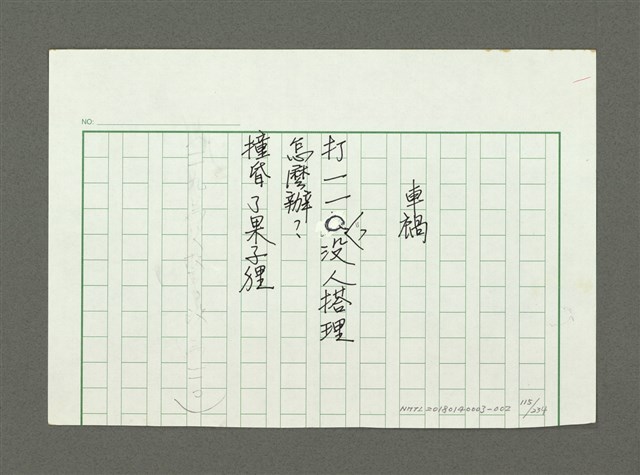 NO:
車禍
打一一〇沒人搭理
怎麼辦？
撞昏了果子狸
NMTL20180140003-002
115/234